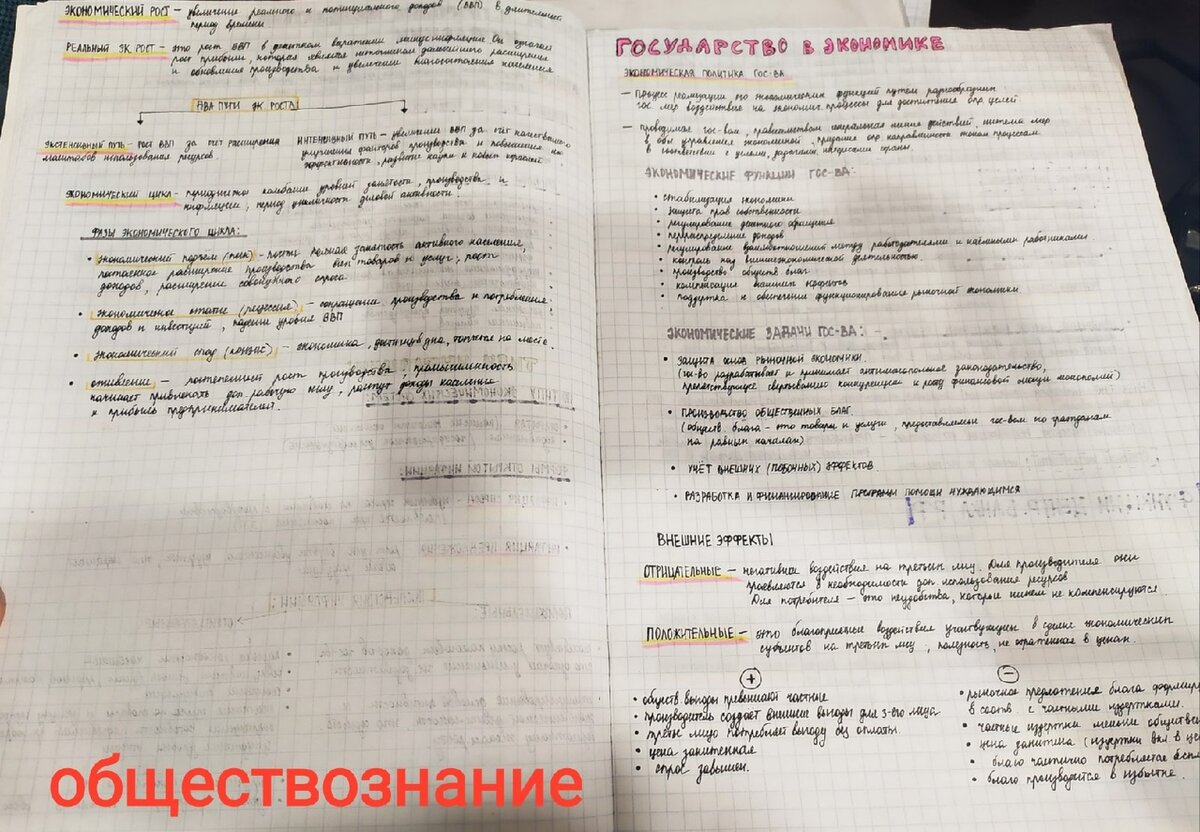 ЭКОНОМИЧЕСКИЙ РОСТ – увеличение реального и потенциального доходов (ВВП) в длительный
период времени
РЕАЛЬНЫЙ ЭК. РОСТ – это рост ВВП в денежном выражении минус инфляция. Он означает
рост прибыли, которая является источником дальнейшего расширения
и обновления производства и увеличения благосостояния населения
ДВА ПУТИ ЭК РОСТА
ЭКСТЕНСИВНЫЙ ПУТЬ – рост ВВП за счёт расширения
масштабов использования ресурсов.
ИНТЕНСИВНЫЙ ПУТЬ – увеличение ВВП за счёт качественного
улучшения факторов производства и повышения их
эффективности, развитие науки и новых отраслей
ЭКОНОМИЧЕСКИЙ ЦИКЛ – периодические колебания уровней занятости, производства и
инфляции, период цикличности деловой активности.
ФАЗЫ ЭКОНОМИЧЕСКОГО ЦИКЛА:
• экономический подъём (пик) – почти полная занятость активного населения,
постоянное расширение производства всех товаров и услуг, рост
доходов, расширение совокупного спроса
• экономическое сжатие (рецессия) – сокращение производства и потребления
доходов и инвестиций, падение уровня ВВП
• экономический спад (кризис) – экономика, достигнув дна, топчется на месте.
• оживление – постепенный рост производства, промышленность
начинает привлекать доп рабочую силу, растут доходы населения
и прибыль предпринимателей.
ГОСУДАРСТВО В ЭКОНОМИКЕ
ЭКОНОМИЧЕСКАЯ ПОЛИТИКА ГОС-ВА
– процесс реализации его экономических функций путём разнообразных
гос мер воздействия на экономич. процессы для достижения опр целей
– проводимая гос-вом, правительством генеральная линия действий, система мер
в обл управления экономикой, придание опр направленности экон процессам
в соответствии с целями, задачами, интересами страны.
ЭКОНОМИЧЕСКИЕ ФУНКЦИИ ГОС-ВА:
• стабилизация экономики
• защита прав собственности
• регулирование денежного обращения
• перераспределение доходов
• регулирование взаимоотношений между работодателями и наёмными работниками
• контроль над внешнеэкономической деятельностью.
• производство обществ благ
• компенсация внешних эффектов
• поддержка и обеспечение функционирования рыночной экономики
ЭКОНОМИЧЕСКИЕ ЗАДАЧИ ГОС-ВА:
• ЗАЩИТА ОСНОВ РЫНОЧНОЙ ЭКОНОМИКИ.
(гос-во разрабатывает и принимает антимонопольное законодательство,
препятствующее свёртыванию конкуренции и росту финансовой мощи монополий)
• ПРОИЗВОДСТВО ОБЩЕСТВЕННЫХ БЛАГ.
(обществ. блага – это товары и услуги, предоставляемые гос-вом его гражданам
на равных началах)
• УЧЁТ ВНЕШНИХ (ПОБОЧНЫХ) ЭФФЕКТОВ
• РАЗРАБОТКА И ФИНАНСИРОВАНИЕ ПРОГРАММЫ ПОМОЩИ НУЖДАЮЩИМСЯ
ВНЕШНИЕ ЭФФЕКТЫ
ОТРИЦАТЕЛЬНЫЕ – негативные воздействия на третьих лиц. Для производителя они
проявляются в необходимости доп использования ресурсов
Для потребителя – это неудобства, которые ничем не компенсируются
ПОЛОЖИТЕЛЬНЫЕ – это благоприятные воздействия участвующих в сделке экономических
субъектов на третьих лиц, полезность, не отражённая в ценах.
+
• обществ выгоды превышают частные
• производитель создаёт внешние выгоды для 3-его лица
• третье лицо потребляет выгоду без оплаты.
• цена заниженная
• спрос завышен.
–
• рыночное предложения блага формир
в соотв с частными издержками.
• частные издержки меньше обществен
• цена занижена (издержки вкл в цен
• благо частично потребляется беспл
• благо производится в избытке.
обществознание